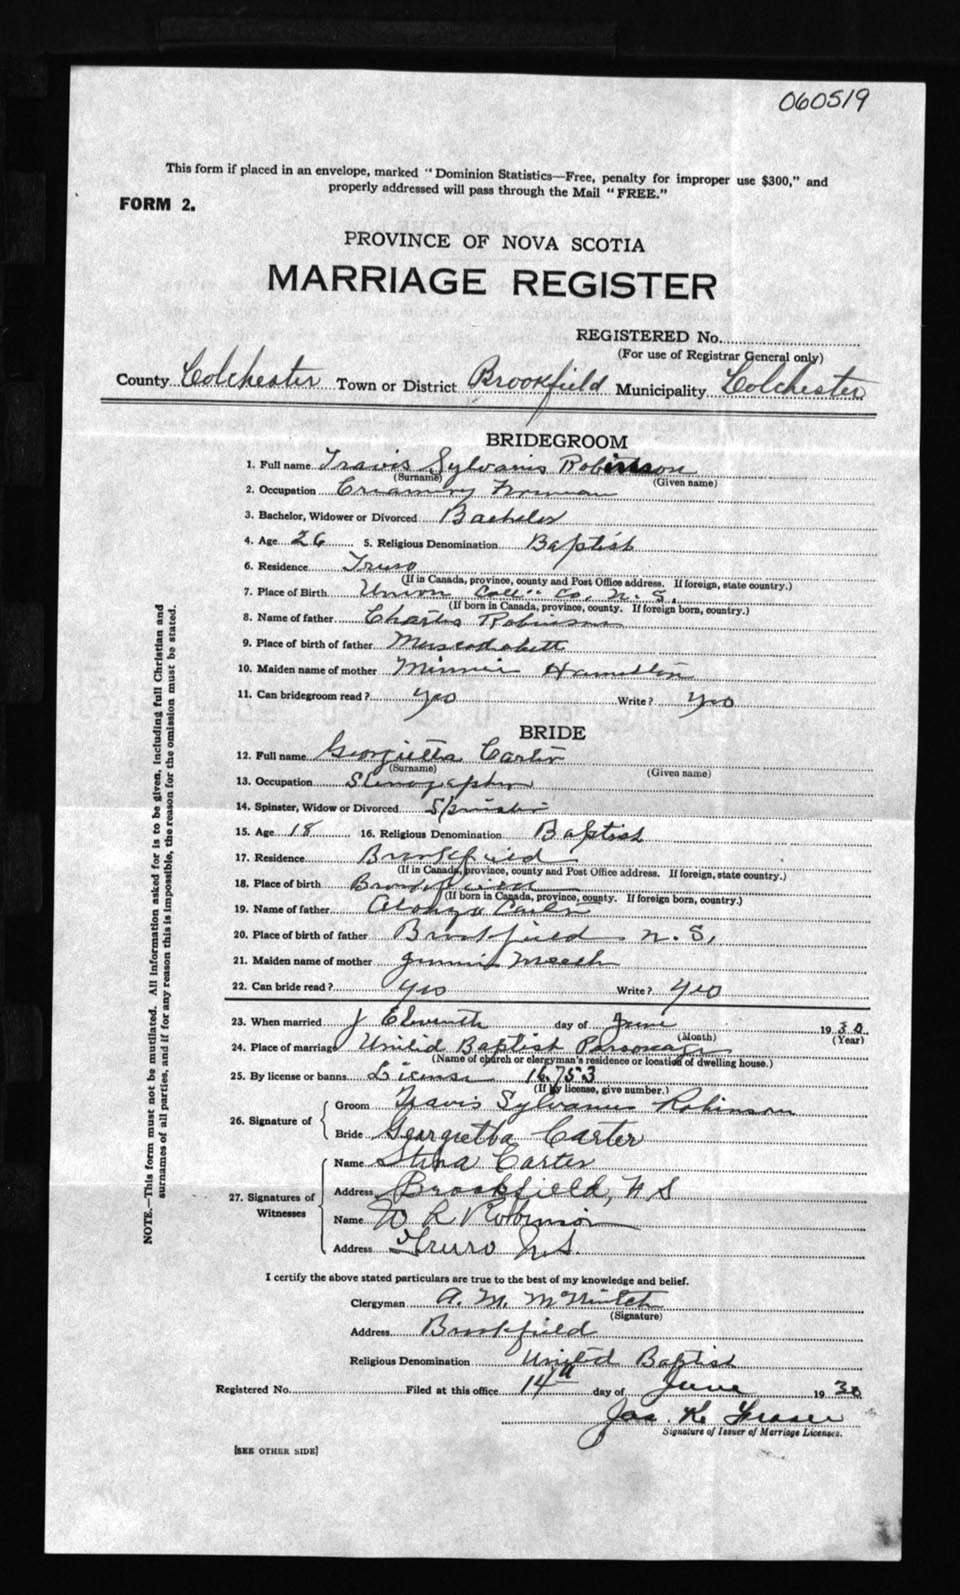 060519
This form if placed in an envelope, marked "Dominion Statistics—Free, penalty for improper use $300," and
properly addressed will pass through the Mail "FREE."
FORM 2.
PROVINCE OF NOVA SCOTIA
MARRIAGE REGISTER
REGISTERED No.
(For use of Registrar General only)
County Colchester Town or District Brookfield Municipality Colchester
BRIDEGROOM
1. Full name Travis Sylvanus Robinson
(Surname) (Given name)
2. Occupation Creamery
3. Bachelor, Widower or Divorced Bachelor
4. Age 26 5. Religious Denomination Baptist
6. Residence Truro
(If in Canada, province, county and Post Office address. If foreign, state country.)
7. Place of Birth Union Co. N. S.
(If born in Canada, province, county. If foreign born, country.)
8. Name of father Charles Robinson
9. Place of birth of father
10. Maiden name of mother Minnie Hamilton
11. Can bridegroom read? Yes Write? Yes
BRIDE
12. Full name Georgietta Carter
(Surname) (Given name)
13. Occupation Stenographer
14. Spinster, Widow or Divorced Spinster
15. Age 18 16. Religious Denomination Baptist
17. Residence Brookfield
(If in Canada, province, county and Post Office address. If foreign, state country.)
18. Place of birth Brookfield
(If born in Canada, province, county. If foreign born, country.)
19. Name of father Alonzo Carter
20. Place of birth of father Brookfield N. S.
21. Maiden name of mother
22. Can bride read? Yes Write? Yes
23. When married Eleventh day of June 1930
(Month) (Year)
24. Place of marriage United Baptist Parsonage
(Name of church or clergyman's residence or location of dwelling house.)
25. By license or banns License 16,753
(If by license, give number.)
26. Signature of
Groom Travis Sylvanus Robinson
Bride Georgietta Carter
27. Signatures of Witnesses
Name Carter
Address Brookfield, N S
Name W R Robinson
Address Truro N.S.
I certify the above stated particulars are true to the best of my knowledge and belief.
Clergyman A. M.
(Signature)
Address Brookfield
Religious Denomination United Baptist
Registered No. Filed at this office 14th day of June 1930
Jas. K. Fraser
Signature of Issuer of Marriage Licenses.
[SEE OTHER SIDE]
NOTE.—This form must not be mutilated. All information asked for is to be given, including full Christian and
surnames of all parties, and if for any reason this is impossible, the reason for the omission must be stated.